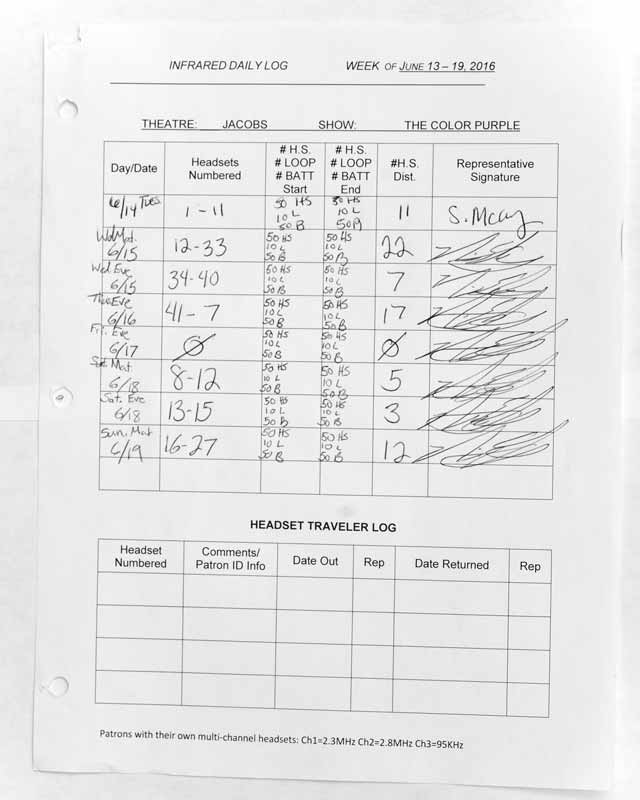 INFRARED DAILY LOG WEEK OF JUNE 13 – 19, 2016
THEATRE: JACOBS SHOW: THE COLOR PURPLE
Day/Date Headsets Numbered # H.S. # LOOP # BATT Start # H.S. # LOOP # BATT End #H.S. Dist. Representative Signature
6/14 Tues 1-11 50 HS 10 L 50 B 50 HS 10 L 50 B 11
Wed Mat. 6/15 12-33 50 HS 10 L 50 B 50 HS 10 L 50 B 22
Wed Eve 6/15 34-40 50 HS 10 L 50 B 50 HS 10 L 50 B 7
Thu Eve 6/16 41-7 50 HS 10 L 50 B 50 HS 10 L 50 B 17
Fri. Eve 6/17 Ø 50 HS 10 L 50 B 50 HS 10 L 50 B Ø
Sat Mat. 6/18 8-12 50 HS 10 L 50 B 50 HS 10 L 50 B 5
Sat. Eve 6/18 13-15 50 HS 10 L 50 B 50 HS 10 L 50 B 3
Sun. Mat 6/19 16-27 50 HS 10 L 50 B 50 HS 10 L 50 B 12
HEADSET TRAVELER LOG
Headset Numbered Comments/ Patron ID Info Date Out Rep Date Returned Rep
Patrons with their own multi-channel headsets: Ch1=2.3MHz Ch2=2.8MHz Ch3=95KHz